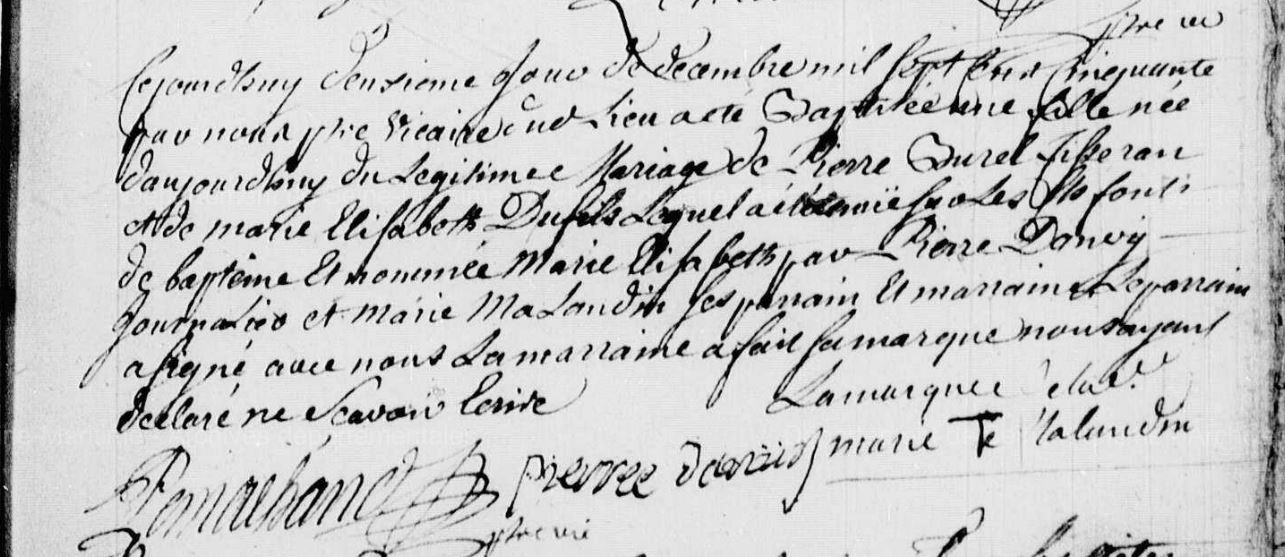 ptre vic
Cejourdhuy deusieme jour de decembre mil sept cens Cinquante
par nous ptre Vicaire dud Lieu a eté Baptisée une fille née
daujourdhuy du Legitimee Mariage de Pierre Burel
et de marie Elisabeth Lequel a été sur Les fts fonts
de baptême Et nommée Marie Elisabeth par Pierre Danvy
Journalier et Marie Malandin ses parrain Et marraine Leparrain
a signé avec nous La marraine a fait sa marque nous ayant
declaré ne Scavoir Ecrire
La marque de
pierre marie Malandin
ptre vic